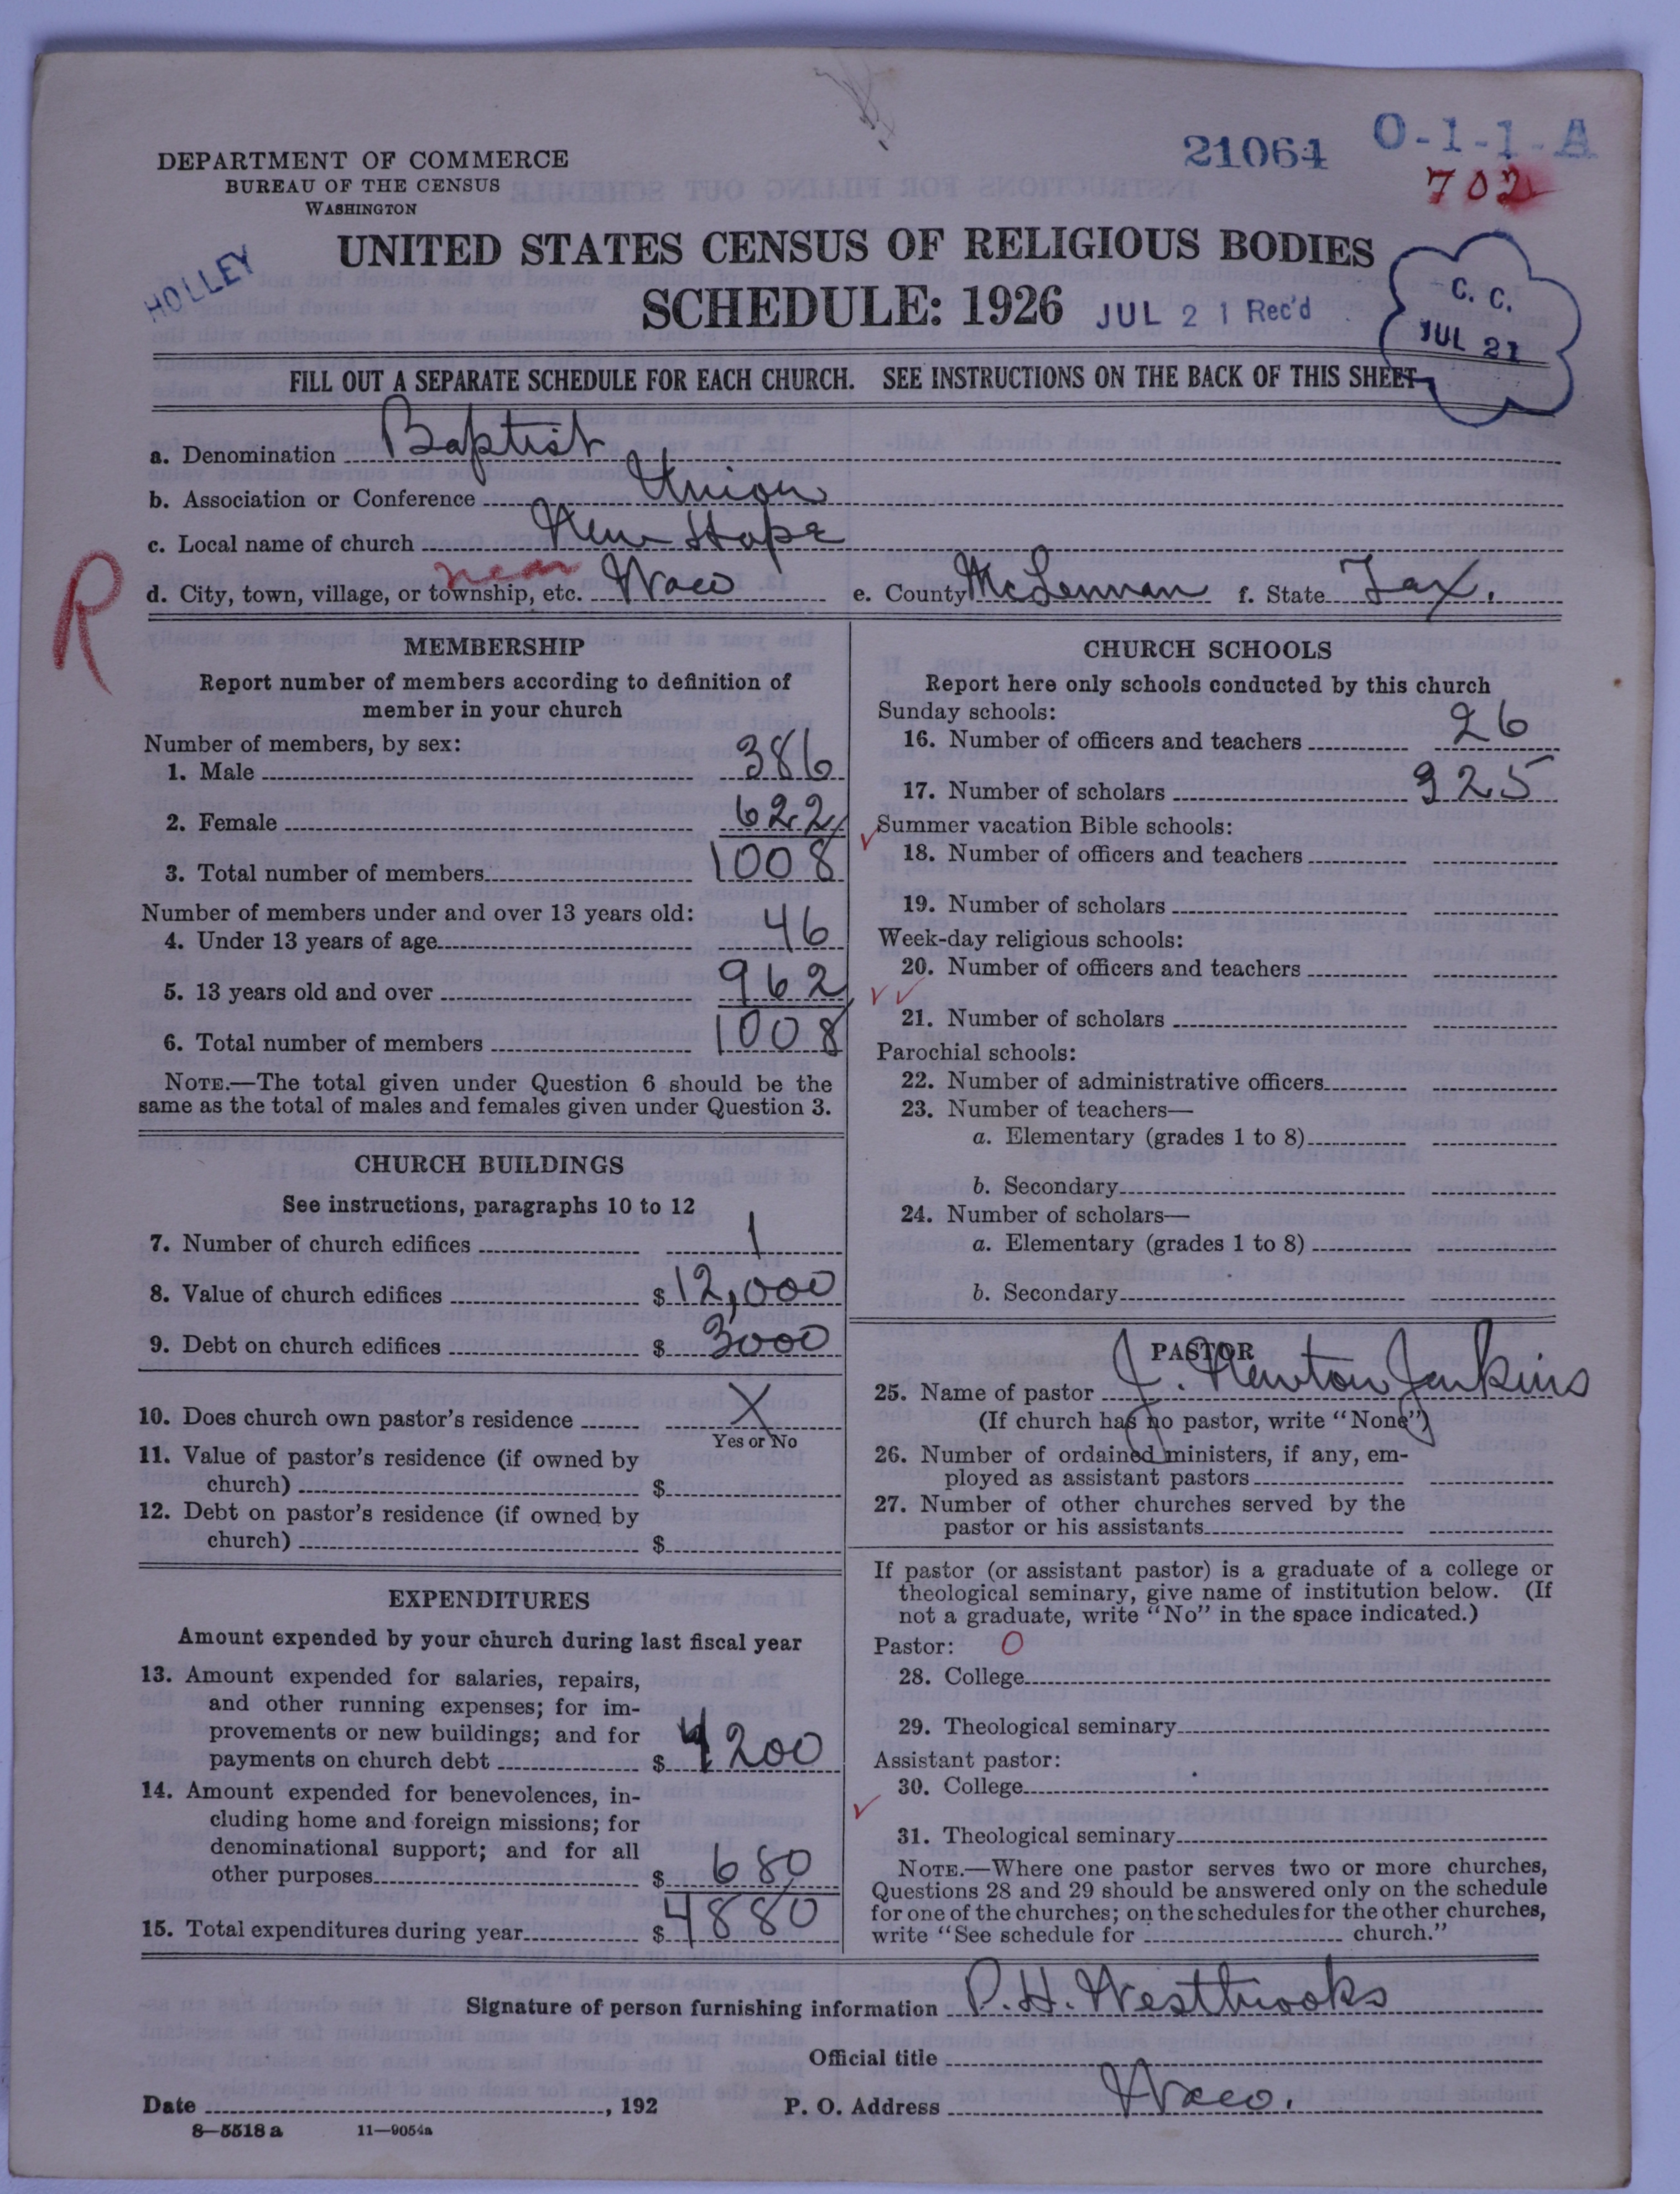 21064 O-1-1-A
702
DEPARTMENT OF COMMERCE
BUREAU OF THE CENSUS
WASHINGTON
HOLLEY
UNITED STATES CENSUS OF RELIGIOUS BODIES
SCHEDULE: 1926 JUL 21 Rec'd
C. C.
JUL 21
FILL OUT A SEPARATE SCHEDULE FOR EACH CHURCH. SEE INSTRUCTIONS ON THE BACK OF THIS SHEET
a. Denomination Baptist
b. Association or Conference Union
c. Local name of church New Hope
R
near
d. City, town, village, or township, etc. Waco e. County McLennan f. State Tex.
MEMBERSHIP
Report number of members according to definition of
member in your church
Number of members, by sex:
1. Male 386
2. Female 622
3. Total number of members 1008
Number of members under and over 13 years old:
4. Under 13 years of age 46
5. 13 years old and over 962
6. Total number of members 1008
NOTE.—The total given under Question 6 should be the
same as the total of males and females given under Question 3.
CHURCH BUILDINGS
See instructions, paragraphs 10 to 12
7. Number of church edifices 1
8. Value of church edifices $ 12,000
9. Debt on church edifices $ 3000
10. Does church own pastor's residence X
Yes or No
11. Value of pastor's residence (if owned by
church) $
12. Debt on pastor's residence (if owned by
church) $
EXPENDITURES
Amount expended by your church during last fiscal year
13. Amount expended for salaries, repairs,
and other running expenses; for im-
provements or new buildings; and for
payments on church debt $ 4200
14. Amount expended for benevolences, in-
cluding home and foreign missions; for
denominational support; and for all
other purposes $ 680
15. Total expenditures during year $ 4880
CHURCH SCHOOLS
Report here only schools conducted by this church
Sunday schools:
16. Number of officers and teachers 26
17. Number of scholars 325
Summer vacation Bible schools:
18. Number of officers and teachers
19. Number of scholars
Week-day religious schools:
20. Number of officers and teachers
21. Number of scholars
Parochial schools:
22. Number of administrative officers
23. Number of teachers—
a. Elementary (grades 1 to 8)
b. Secondary
24. Number of scholars—
a. Elementary (grades 1 to 8)
b. Secondary
PASTOR
25. Name of pastor J. Newton Jenkins
(If church has no pastor, write "None")
26. Number of ordained ministers, if any, em-
ployed as assistant pastors
27. Number of other churches served by the
pastor or his assistants
If pastor (or assistant pastor) is a graduate of a college or
theological seminary, give name of institution below. (If
not a graduate, write "No" in the space indicated.)
Pastor: 0
28. College
29. Theological seminary
Assistant pastor:
30. College
31. Theological seminary
NOTE.—Where one pastor serves two or more churches,
Questions 28 and 29 should be answered only on the schedule
for one of the churches; on the schedules for the other churches,
write "See schedule for church."
Signature of person furnishing information P. H. Westbrooks
Official title
Date , 192 P. O. Address Waco.
8—5518 a 11—9054a